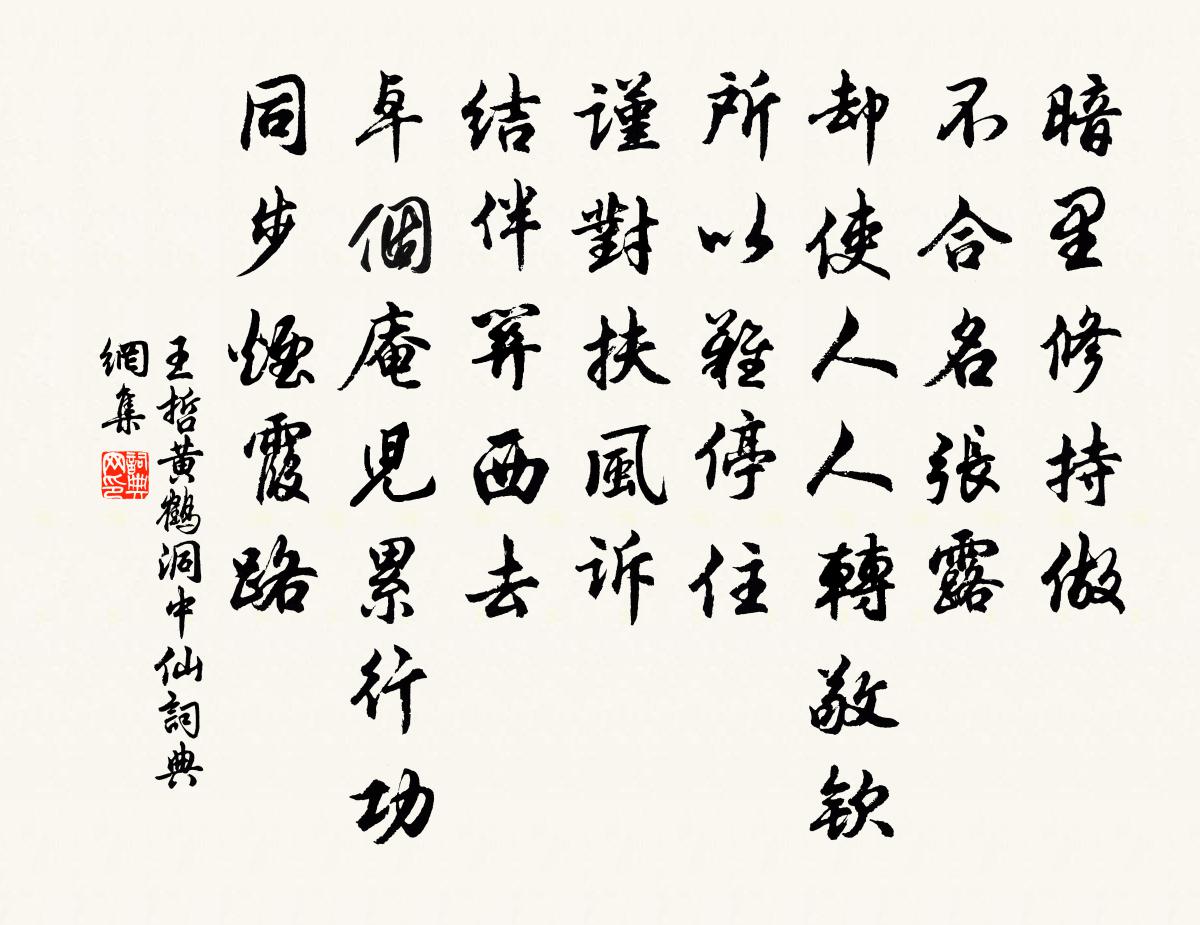 暗里修持做
不合名張露
却使人人轉敬欽
所以難停住
謹對扶風訴
结伴關西去
卓個庵兒累行功
同步煙霞路
王哲黄鶴洞中仙詞典
網集
詞典
网印